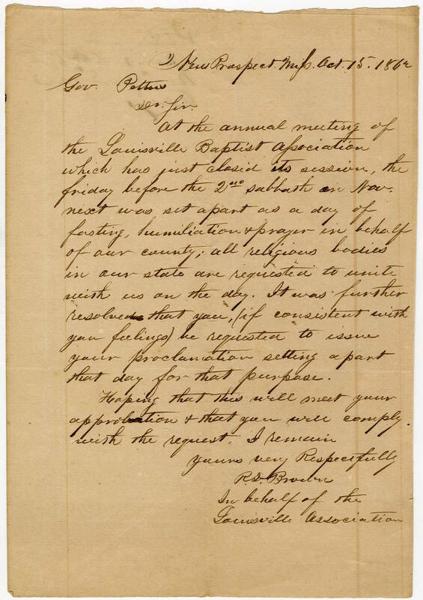 New Prospect Miss. Oct 15. 1862
Gov. Pettus
Dr Sir
At the annual meeting of
the Louisville Baptist Association
which has just closed its session, the
friday before the 2nd sabbath in Nov.
next was set apart as a day of
fasting, humiliation & prayer in behalf
of our county; all religious bodies
in our state are requested to unite
with us on the day. It was further
resolved that you, (if consistent with
you feelings) be requested to issue
your proclamation setting apart
that day for that purpose.
Hoping that this will meet your
approbation & that you will comply
with the request. I remain
yours very Respectfully
R.S.
In behalf of the
Louisville Association